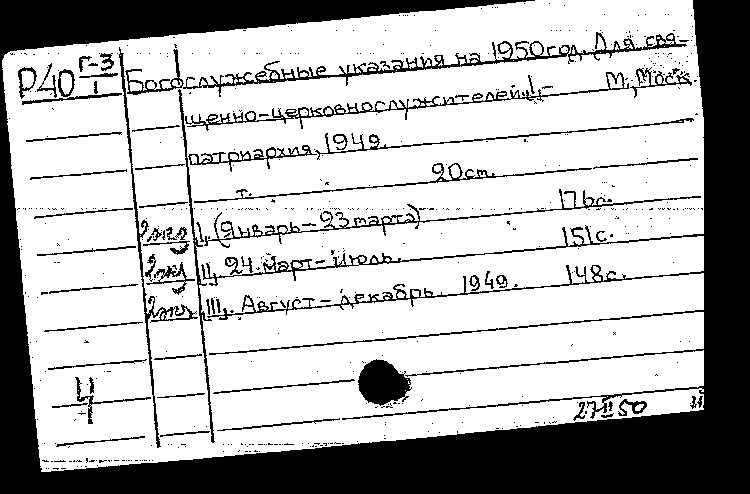 Р40 Г-3/1 Богослужебные указания на 1950 год. Для свя-
щенно-церковнослужителей, I,- М., Моск.
патриархия, 1949.
т. 20 cm.
2экз I, (Январь-23 марта) 176с.
2экз II, 24. март-июль. 151с.
2экз III, Август-декабрь. 1949. 148с.
4
27 II 50